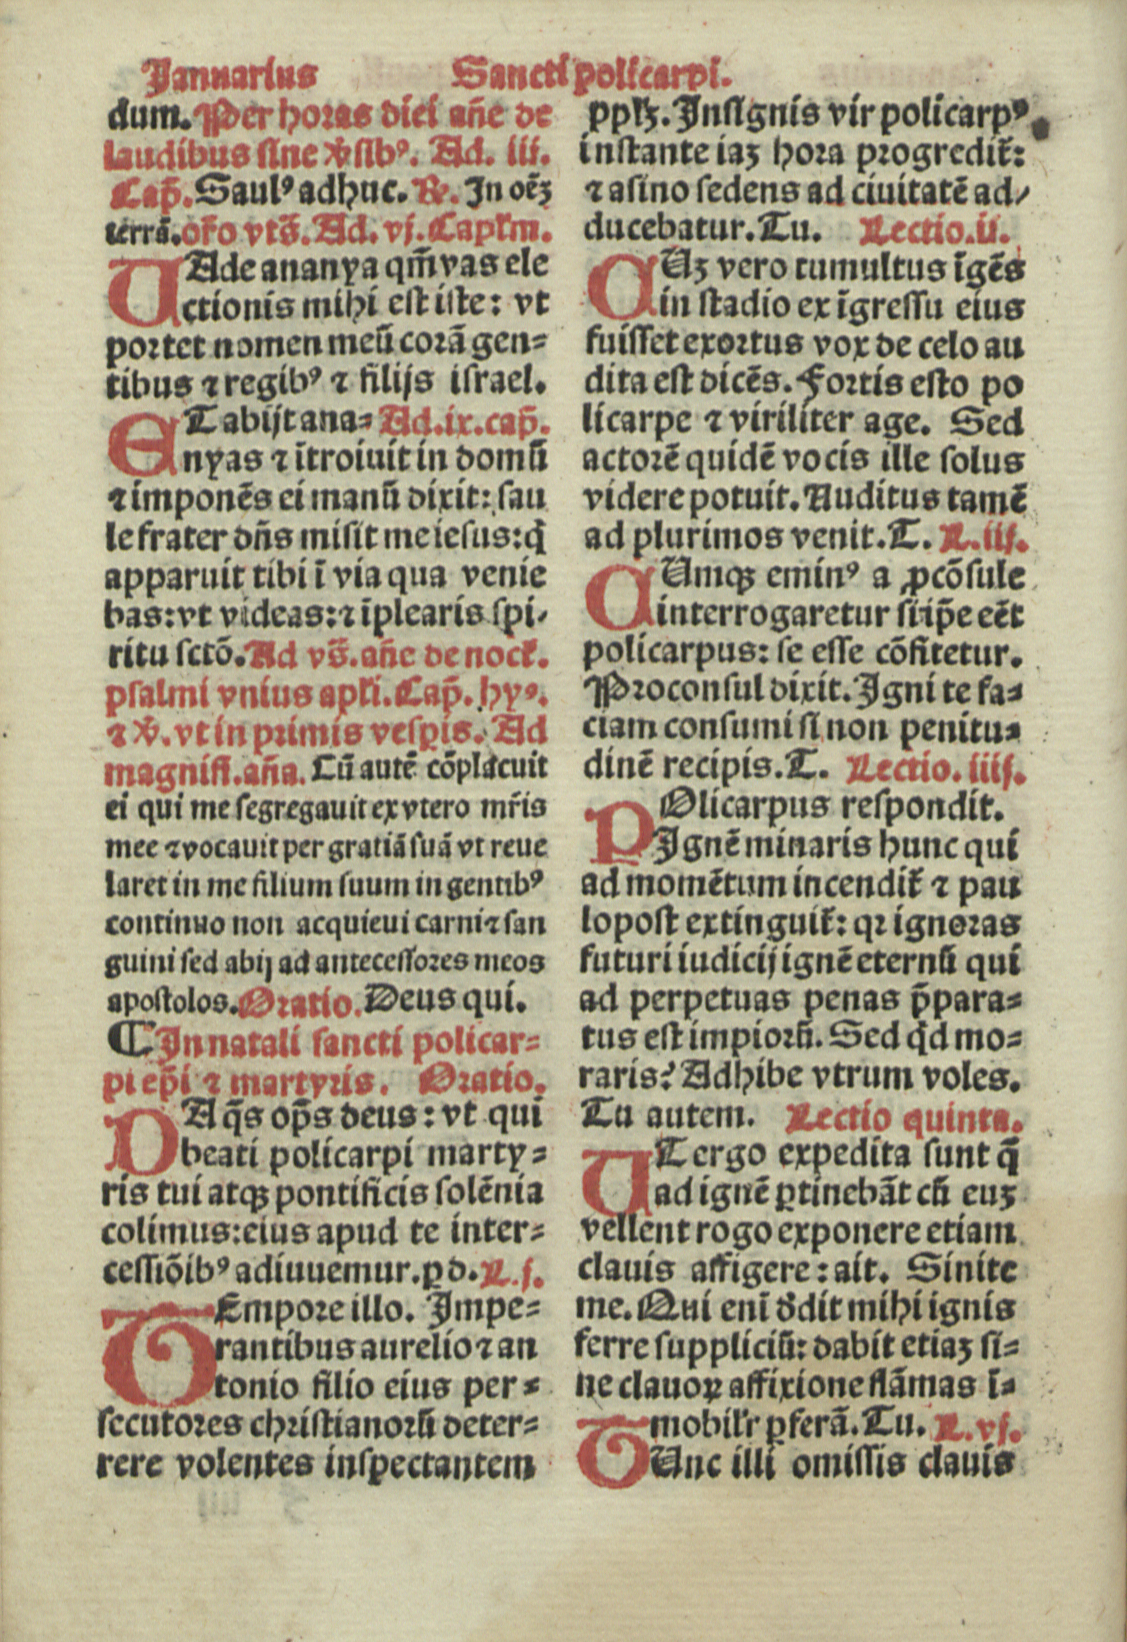 Januarius Sancti policarpi.
dum. Per horas diei añe de
laudibus sine v̄sibꝰ. Ad. iij.
Cap̄. Saulꝰ adhuc. ℟. In oēꝫ
terrā. or̄o vts̄. Ad. vj. Capl̄m.
VAde ananya qm̄ vas ele
ctionis mihi est iste: vt
portet nomen meū corā gen-
tibus ⁊ regibꝰ ⁊ filijs israel.
ET abijt ana- Ad. ix. cap̄.
nyas ⁊ ītroiuit in domū
⁊ imponēs ei manū dixit: sau
le frater dn̄s misit me iesus: q̄
apparuit tibi ī via qua venie
bas: vt videas: ⁊ īplearis spi-
ritu sctō. Ad vs̄. añe de noct̄.
psalmi vnius apl̄i. Cap̄. hyꝰ.
⁊ v̄. vt in primis vesp̄is. Ad
magnifi. aña. Cū autē cōplacuit
ei qui me segregauit ex vtero mr̄is
mee ⁊ vocauit per gratiā suā vt reue
laret in me filium suum in gentibꝰ
continuo non acquieui carni ⁊ san
guini sed abij ad antecessores meos
apostolos. Oratio. Deus qui.
¶ In natali sancti policar-
pi ep̄i ⁊ martyris. Oratio.
DA q̄s op̄s deus: vt qui
beati policarpi marty-
ris tui atqꝫ pontificis solēnia
colimus: eius apud te inter-
cessiōibꝰ adiuuemur. ꝑ d. L. j.
TEmpore illo. Impe-
rantibus aurelio ⁊ an
tonio filio eius per-
secutores christianorū deter-
rere volentes inspectantem
ppl̄ꝫ. Insignis vir policarpꝰ
instante iaꝫ hora progredit̄:
⁊ asino sedens ad ciuitatē ad/
ducebatur. Tu. Lectio. ii.
CUꝫ vero tumultus īgēs
in stadio ex īgressu eius
fuisset exortus vox de celo au
dita est dicēs. Fortis esto po
licarpe ⁊ viriliter age. Sed
actorē quidē vocis ille solus
videre potuit. Auditus tamē
ad plurimos venit. T. L. iij.
CUmqꝫ eminꝰ a ꝓcōsule
interrogaretur si ip̄e eēt
policarpus: se esse cōfitetur.
Proconsul dixit. Igni te fa-
ciam consumi si non penitu-
dinē recipis. T. Lectio. iiij.
POlicarpus respondit.
Ignē minaris hunc qui
ad momētum incendit̄ ⁊ pau
lopost extinguit̄: qr ignoras
futuri iudicij ignē eternū qui
ad perpetuas penas p̄para-
tus est impiorū. Sed q̄d mo-
raris? Adhibe vtrum voles.
Tu autem. Lectio quinta.
UT ergo expedita sunt q̄
ad ignē ꝑtinebāt cū euꝫ
vellent rogo exponere etiam
clauis affigere: ait. Sinite
me. Qui enī d̄dit mihi ignis
ferre suppliciū: dabit etiaꝫ si-
ne clauoꝝ affixione flāmas ī-
mobilr̄ ꝑferā. Tu. L. vj.
TUnc illi omissis clauis